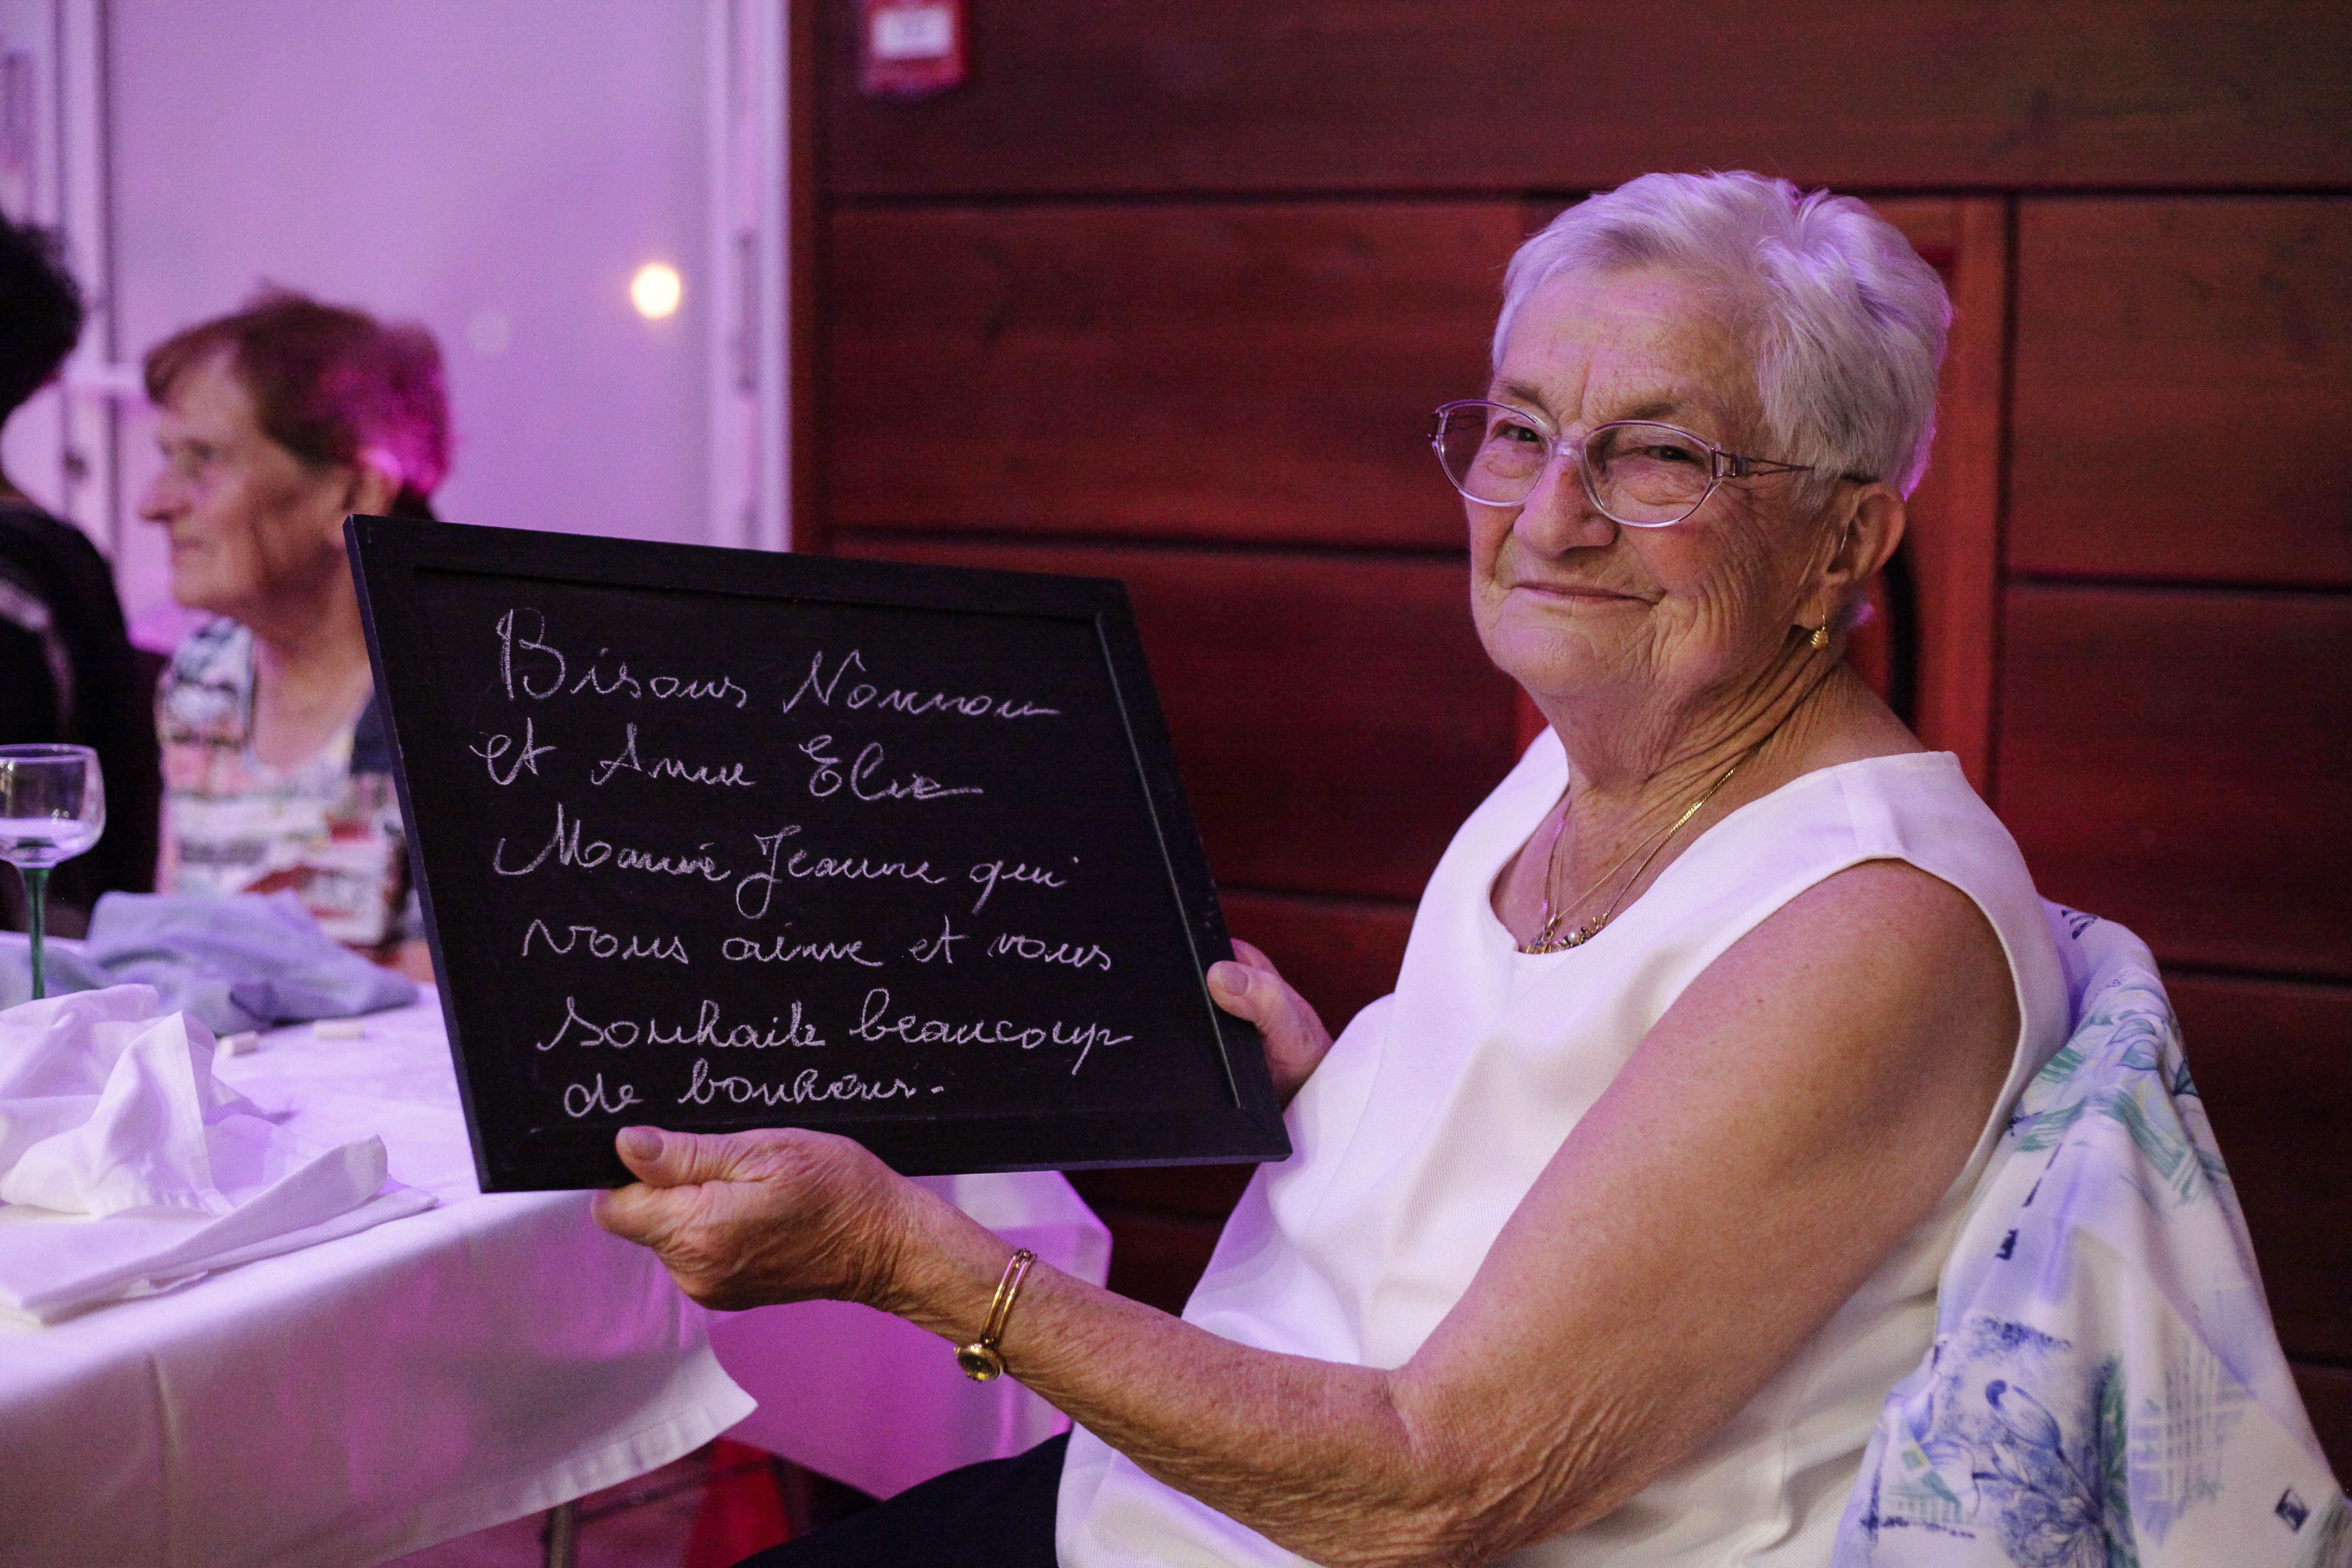 Bisous Nounou
et Anne Elise
Marie Jeanne qui
vous aime et vous
souhaite beaucoup
de bonheur.